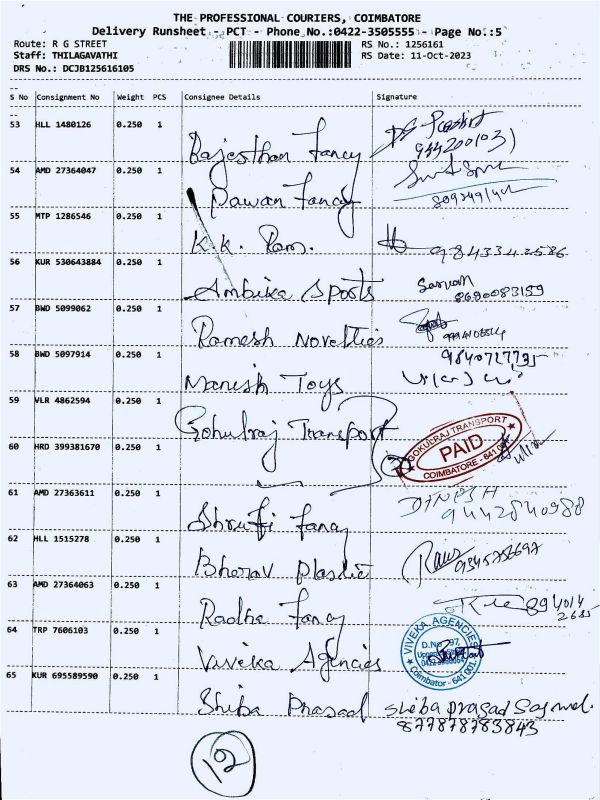 THE PROFESSIONAL COURIERS, COIMBATORE
Delivery Runsheet - PCT - Phone No.:0422-3505555 - Page No.:5
Route: R G STREET RS No.: 1256161
Staff: THILAGAVATHI RS Date: 11-Oct-2023
DRS No.: DCJB125616105
S No Consignment No Weight PCS Consignee Details Signature
53 HLL 1480126 0.250 1 Rajesthan Fancy
54 AMD 27364047 0.250 1 Pawan Fancy
55 MTP 1286546 0.250 1 K.K. Ram. 9843342586
56 KUR 530643884 0.250 1 Ambika Sports
8690083159
57 BWD 5099062 0.250 1 Ramesh Novelties
58 BWD 5097914 0.250 1 Manish Toys
59 VLR 4862594 0.250 1 Gokulraj Transport
GOKULRAJ TRANSPORT
PAID
COIMBATORE - 641
60 HRD 399381670 0.250 1 2
61 AMD 27363611 0.250 1 Shrufi Fancy DINESH
9442840988
62 HLL 1515278 0.250 1 Bherav Plastic
63 AMD 27364063 0.250 1 Radhe Fancy
64 TRP 7606103 0.250 1 Viveka Agencies
VIVEKA AGENCIES
D.No
Coimbator - 641 001.
65 KUR 695589590 0.250 1 Shiba Prasad shiba prasad
877878783843
12